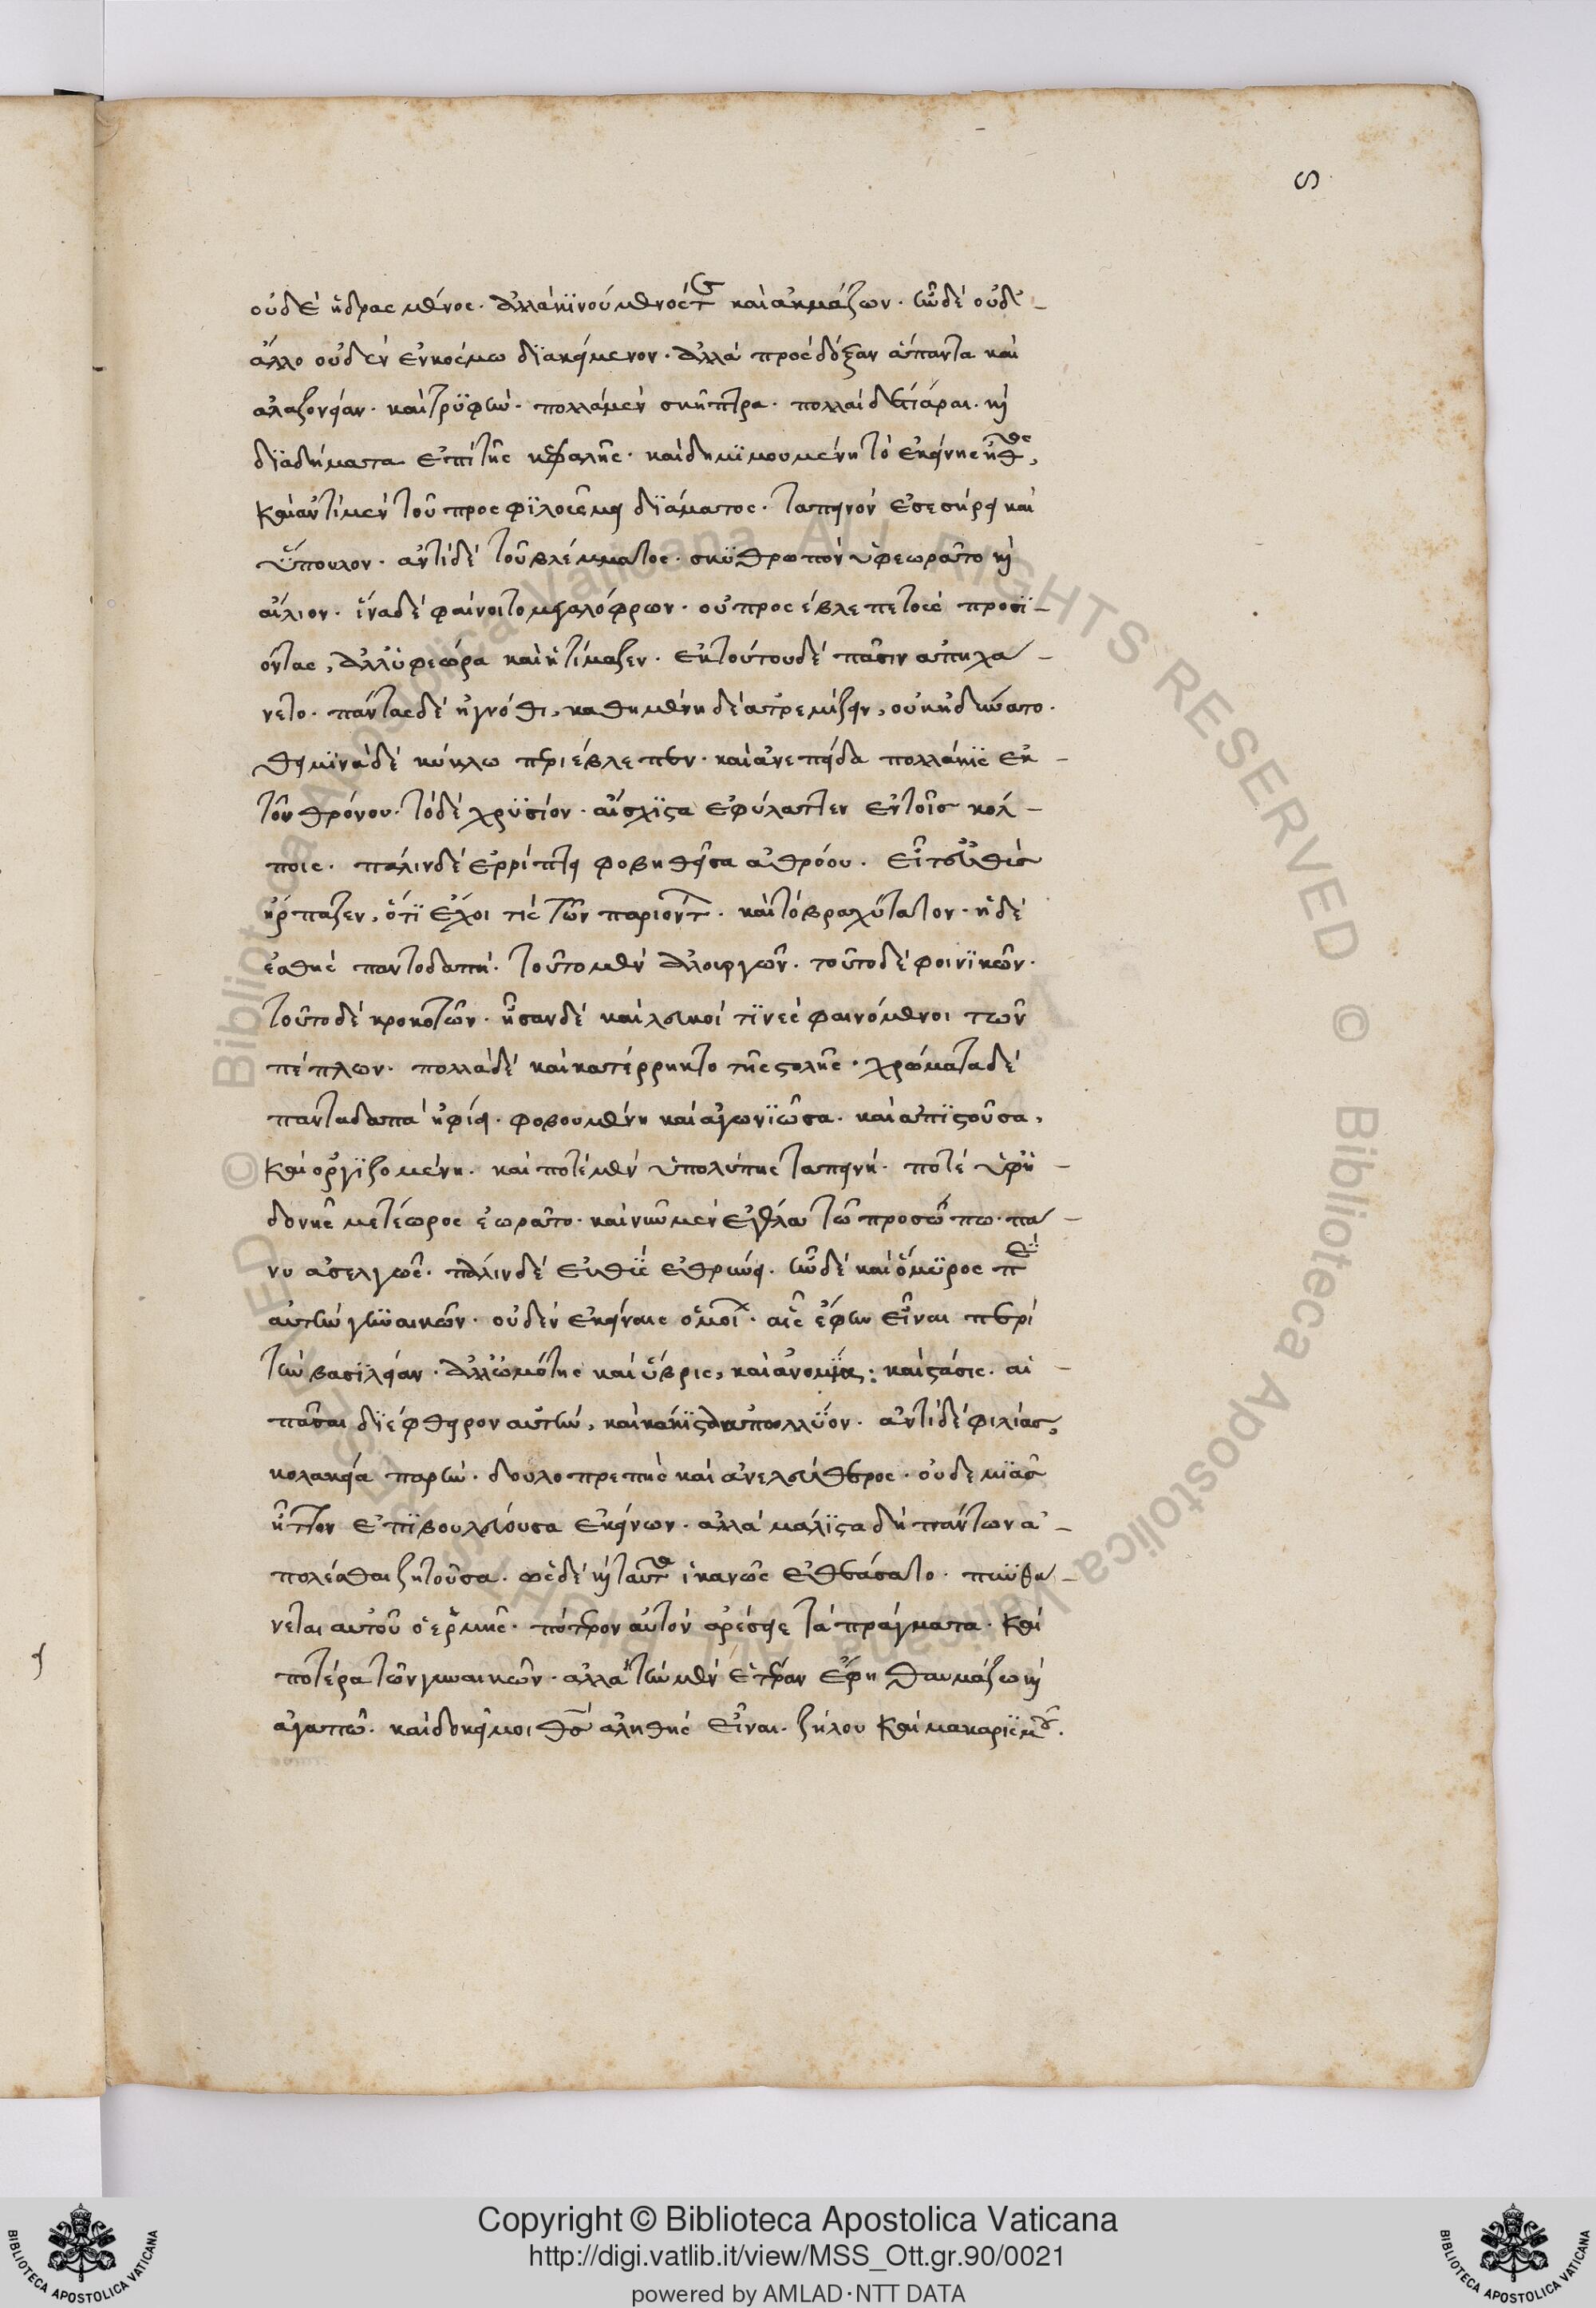 ς
οὐδὲ ἡδρασμένος. ἀλλὰ κινούμενος ἔτι καὶ ἀκμάζων. ἦν δὲ οὐδ' –
ἄλλο οὐδὲν ἐν κόσμω διακείμενον. ἀλλὰ πρὸς δόξαν ἅπαντα καὶ
ἀλαζονείαν. καὶ τρυφήν. πολλὰ μὲν σκῆπτρα. πολλαὶ δὲ τιάραι. καὶ
διαδήματα ἐπὶ τῆς κεφαλῆς. καὶ δὴ μιμουμένη τὸ ἐκείνης ἦθος,
καὶ ἀντὶ μὲν τοῦ προσφιλοῦς μειδιάματος. ταπεινὸν ἐσεσήρει καὶ
ὕπουλον. ἀντὶ δὲ τοῦ βλέμματος. σκυθρωπὸν ὑφεωρᾶτο καὶ
ἵνα δὲ φαίνοιτο μεγαλόφρων. οὐ προσέβλεπε τοὺς προσϊ –
όντας, ἀλλ' ὑφεώρα καὶ ἠτίμαζεν. ἐκ τούτου δὲ πᾶσιν ἀπηχά –
νετο. πάντας δὲ ἠγνόει, καθημένη δὲ ἀτρεμίζειν, οὐκ ἠδύνατο.
θαμινὰ δὲ κύκλω περιέβλεπεν. καὶ ἀνεπήδα πολλάκις ἐκ –
τοῦ θρόνου. τὸ δὲ χρυσίον. αἴσχιστα ἐφύλαττεν ἐν τοῖς κόλ –
ποις. πάλιν δὲ ἐρρίπτει φοβηθεῖσα ἀθρόον. εἶτ' εὐθὺς
ἥρπαζεν, ὅτι ἔχοι τίς τῶν παριόντων. καὶ τὸ βραχύτατον. ἡ δὲ
ἐσθὴς παντοδαπή. τοῦτο μὲν ἁλουργῶν. τοῦτο δὲ φοινικῶν.
τοῦτο δὲ κροκωτῶν. ἦσαν δὲ καὶ λευκοί τινες φαινόμενοι τῶν
πέπλων. πολλὰ δὲ καὶ κατέρρηκτο τῆς στολῆς. χρώματα δὲ
παντοδαπὰ ἠφίει. φοβουμένη καὶ ἀγωνιῶσα. καὶ ἀπιστοῦσα,
καὶ ὀργιζομένη. καὶ ποτὲ μὲν ὑπὸ λύπης ταπεινή. ποτὲ ὑφ' ἡ –
δονῆς μετέωρος ἑωρᾶτο. καὶ νῦν μὲν ἐγέλα τῶ προσώπω πά –
νυ ἀσελγῶς. πάλιν δὲ εὐθὺς ἐθρήνει. ἦν δὲ καὶ ὅμιλος περὶ
αὐτὴν γυναικῶν. οὐδὲν ἐκείναις ὅμοιος. αἷς ἔφην εἶναι περὶ
τὴν βασιλείαν. ἀλλ' ὠμότης καὶ ὕβρις, καὶ ἀνομία: καὶ στάσις. αἳ –
πᾶσαι διέφθειρον αὐτήν, καὶ κάκιστα ἀπώλλυον. ἀντὶ δὲ φιλίας,
κολακεία παρῆν. δουλοπρεπὴς καὶ ἀνελεύθερος. οὐδεμιᾶς
ἧττον ἐπιβουλεύουσα ἐκείνων. ἀλλὰ μάλιστα δὴ πάντων ἀ –
πολέσθαι ζητοῦσα. ὡς δὲ καὶ ταῦτα ἱκανῶς ἐθεάσατο. πυνθά –
νεται αὐτοῦ ὁ ἑρμῆς. πότερον αὐτὸν ἀρέσκει τὰ πράγματα. καὶ
ποτέρα τῶν γυναικῶν. ἀλλὰ τὴν μὲν ἑτέραν ἔφη θαυμάζω καὶ
ἀγαπῶ. καὶ δοκεῖ μοι θεὸς ἀληθὴς εἶναι. ζήλου καὶ μακαρισμοῦ.
Copyright © Biblioteca Apostolica Vaticana
http://digi.vatlib.it/view/MSS_Ott.gr.90/0021
powered by AMLAD·NTT DATA
BIBLIOTECA APOSTOLICA VATICANA
BIBLIOTECA APOSTOLICA VATICANA